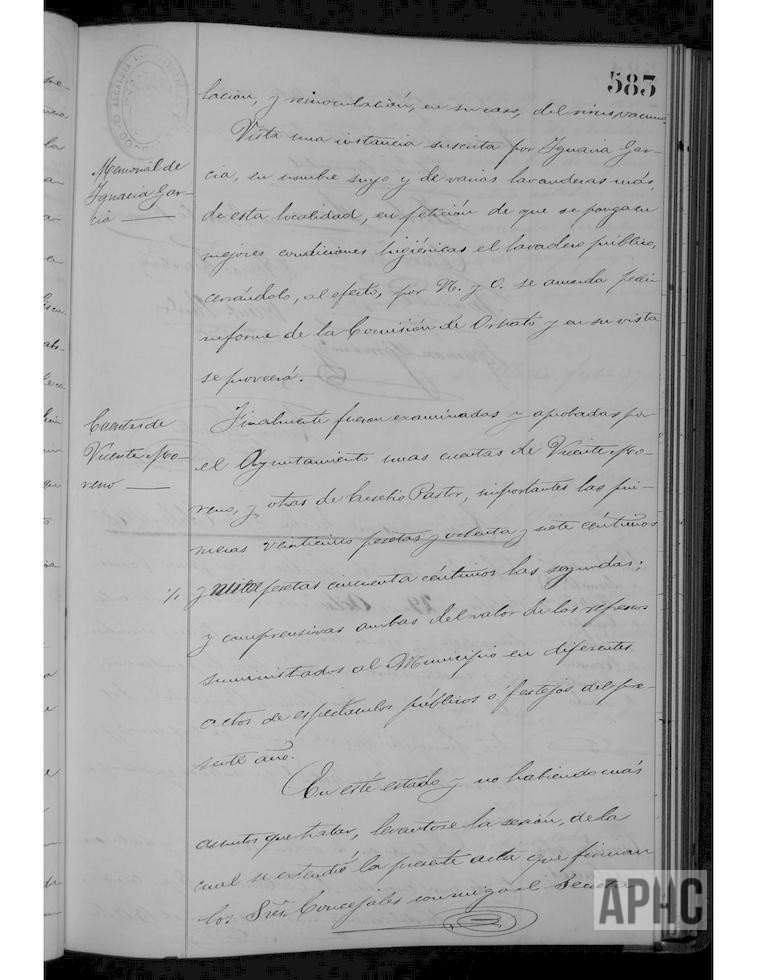 583
lación, y reinoculación, en su caso, del virus vacuno.
Memorial de
Ygnacia Gar-
cia
Vista una instancia suscrita por Ygnacia Gar-
cia, en nombre suyo y de varias lavanderas más,
de esta localidad, en petición de que se ponga en
mejores condiciones higiénicas el lavadero público,
cerrándolo, al efecto, por N. y O. se acuerda pedir
informe de la Comisión de Ornato y en su vista
se proveerá.
Cuentas de
Vicente Mo-
reno
Finalmente fueron examinadas y aprobadas por
el Ayuntamiento unas cuentas de Vicente Mo-
reno, y otras de Eusebio Pastor, importantes las pri-
meras veinticinco pesetas y ochenta y siete céntimos
y nueve pesetas cincuenta céntimos las segundas;
y comprensivas ambas del valor de los refrescos
suministrados al Municipio en diferentes
actos de espectáculos públicos o festejos del pre-
sente año.
En este estado y no habiendo más
asuntos que tratar, levantose la sesión, de la
cual se extendió la presente acta que firman
los Sres. Concejales conmigo el Secreta
APHC